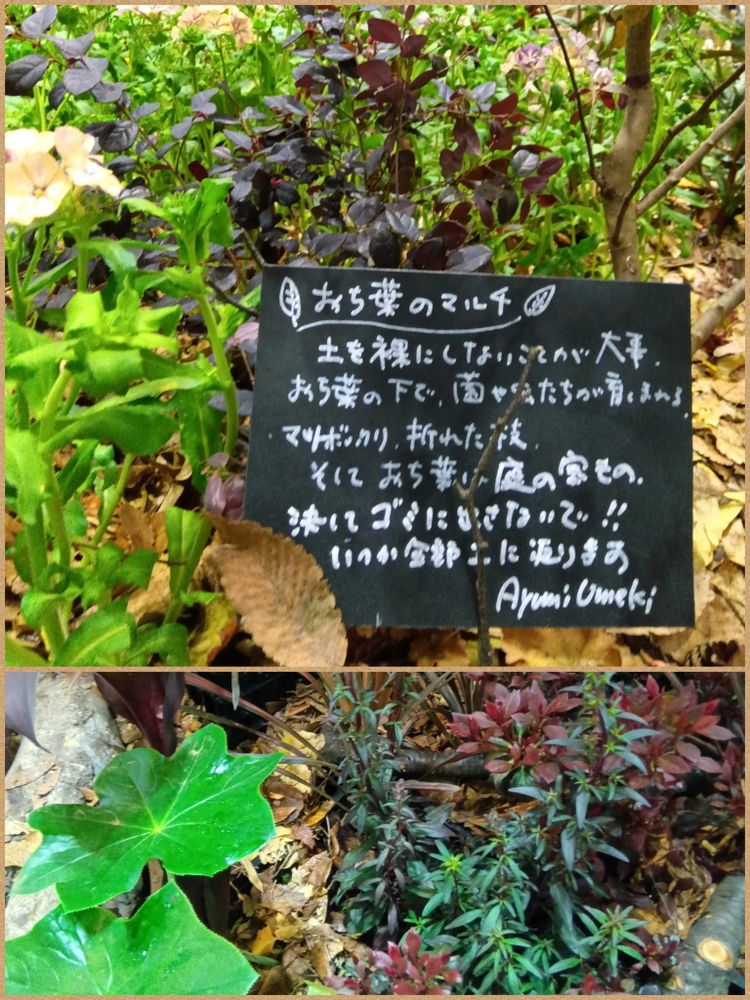 おち葉のマルチ
土を裸にしないことが大事。
おち葉の下で、菌や虫たちが育まれる。
マツボックリ、折れた枝、
そしておち葉は庭の宝もの。
決してゴミにださないで!!
いつか全部土に還ります
Ayumi Umeki